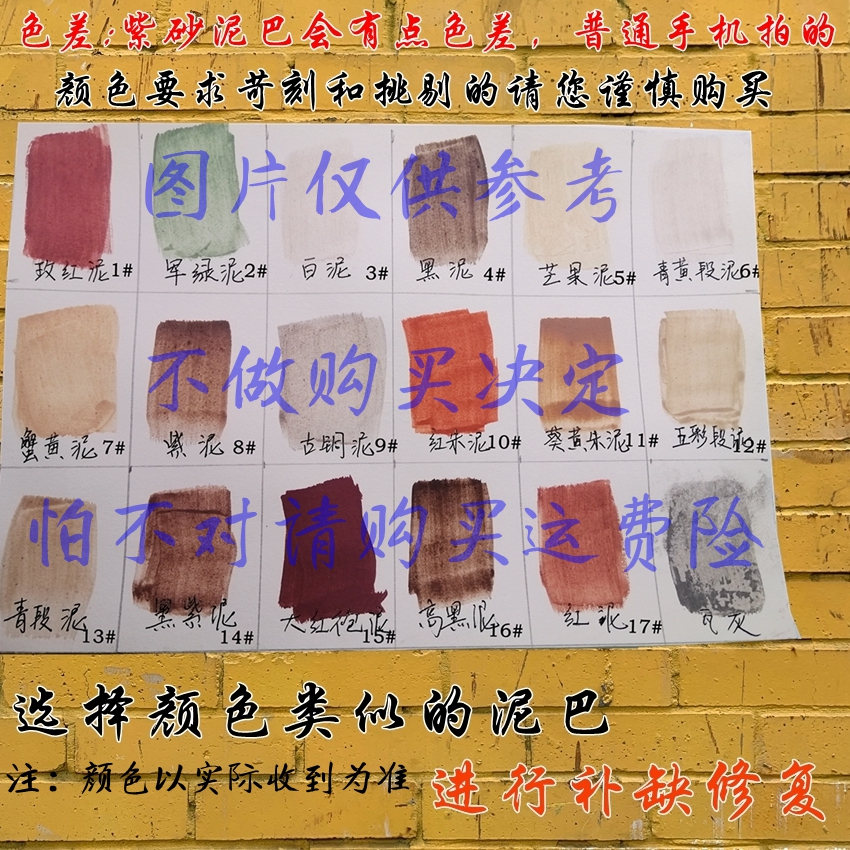 色差;紫砂泥巴会有点色差，普通手机拍的
颜色要求苛刻和挑剔的请您谨慎购买
图片仅供参考
玫红泥1# 军绿泥2# 白泥 3# 黑泥 4# 芒果泥5# 青黄段泥6#
不做购买决定
蟹黄泥7# 紫泥 8# 古明泥9# 红朱泥10# 葵黄朱泥11# 五彩段泥12#
怕不对请购买运费险
青段泥13# 黑紫泥14# 大红袍泥15# 高黑泥16# 红泥17# 瓦灰
选择颜色类似的泥巴
注：颜色以实际收到为准
进行补缺修复